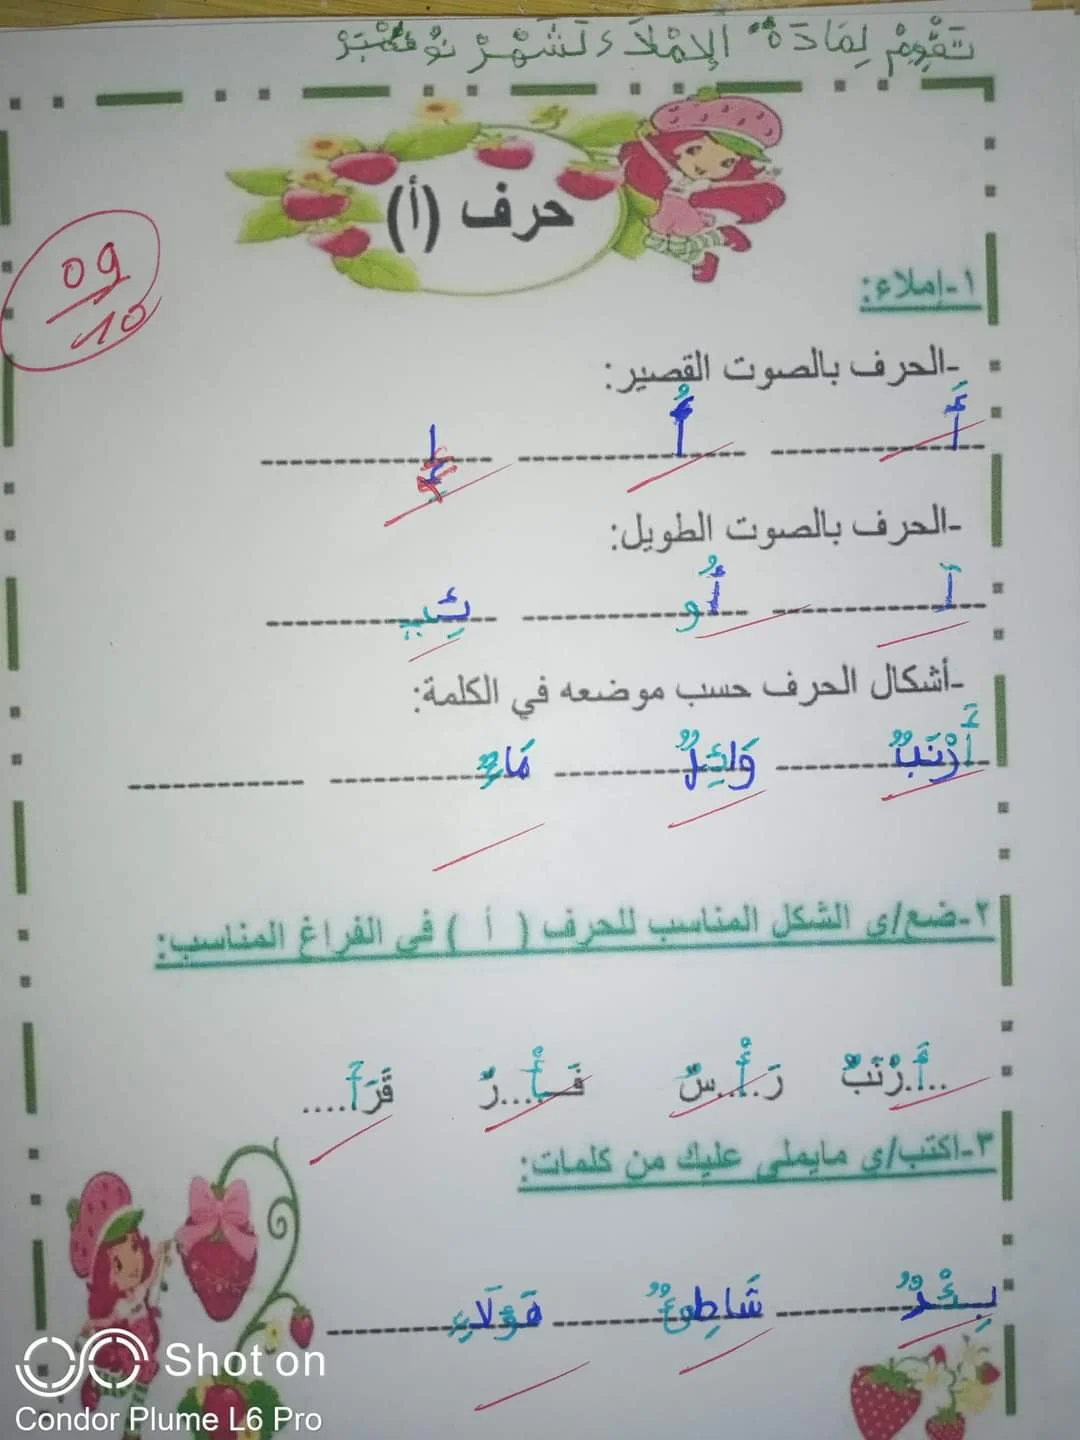 تَقْوِيمْ لِمَادَةْ الإِمْلَاء لَشَهْرْ نُوفَمْبَرْ
حرف (أ)
09
10
١-إملاء:
-الحرف بالصوت القصير:
أَ أُ إِ
-الحرف بالصوت الطويل:
آ أُو ئِي
-أشكال الحرف حسب موضعه في الكلمة:
أَرْنَبٌ وَائِلٌ مَاءٌ
٢-ضع/ي الشكل المناسب للحرف ( أ ) في الفراغ المناسب:
..أَ.رْنَبٌ رَ..أْ..سٌ فَــأْ....رٌ قَرَأَ....
٣-اكتب/ي مايملى عليك من كلمات:
بِئْرٌ شَاطِئٌ هَؤُلَاءِ
Shot on
Condor Plume L6 Pro